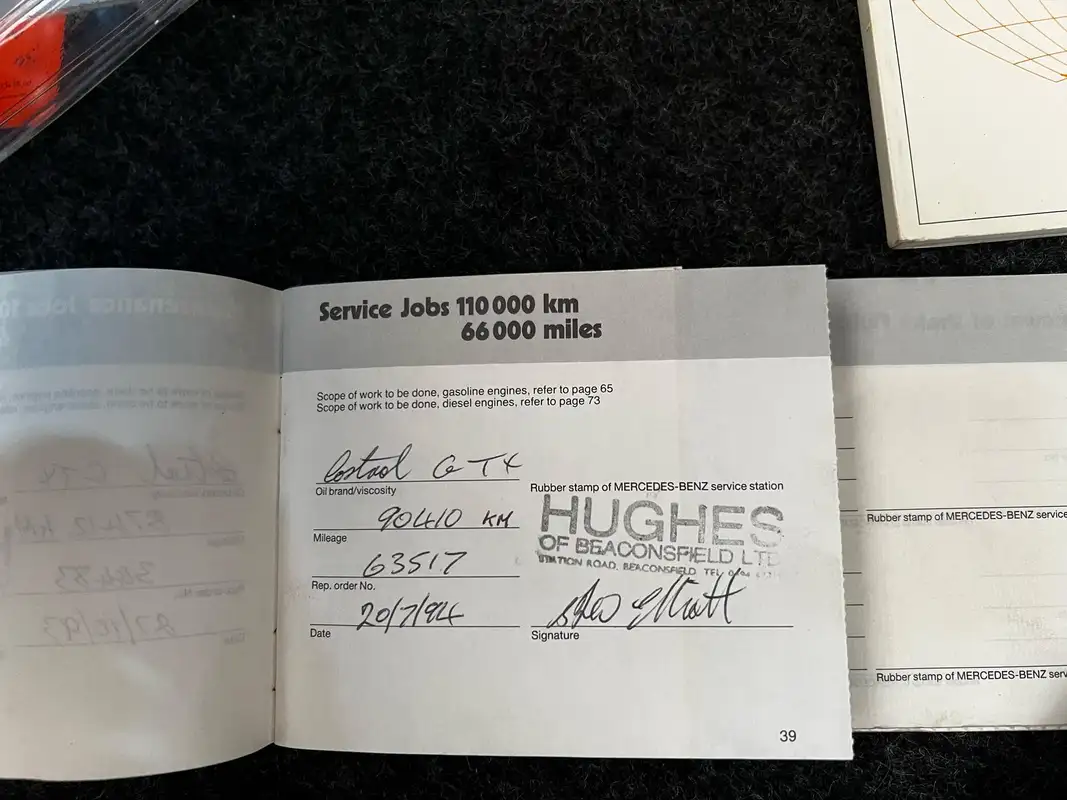 Service Jobs 110 000 km
66 000 miles
Scope of work to be done, gasoline engines, refer to page 65
Scope of work to be done, diesel engines, refer to page 73
Castrol GTX
Oil brand/viscosity
90410 KM
Mileage
63517
Rep. order No.
20/7/94
Date
Rubber stamp of MERCEDES-BENZ service station
HUGHES
OF BEACONSFIELD LTD
STATION ROAD, BEACONSFIELD. TEL
Signature
39
Rubber stamp of MERCEDES-BENZ service
Rubber stamp of MERCEDES-BENZ serv